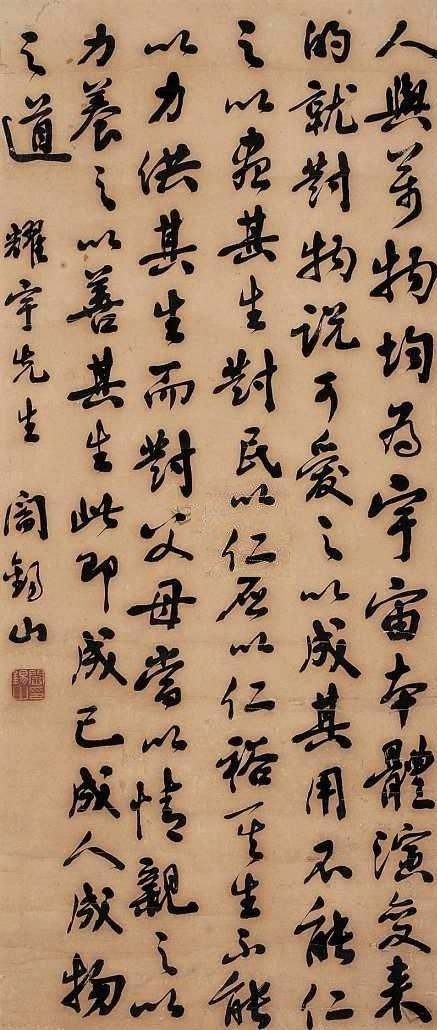 人與萬物均為宇宙本體演變来
的就對物説可愛之以成其用不能仁
之以盡其生對民以仁居以仁裕其生不能
以力供其生而對父母當以情親之以
力養之以善其生此即成己成人成物
之道
耀宇先生
閻錫山